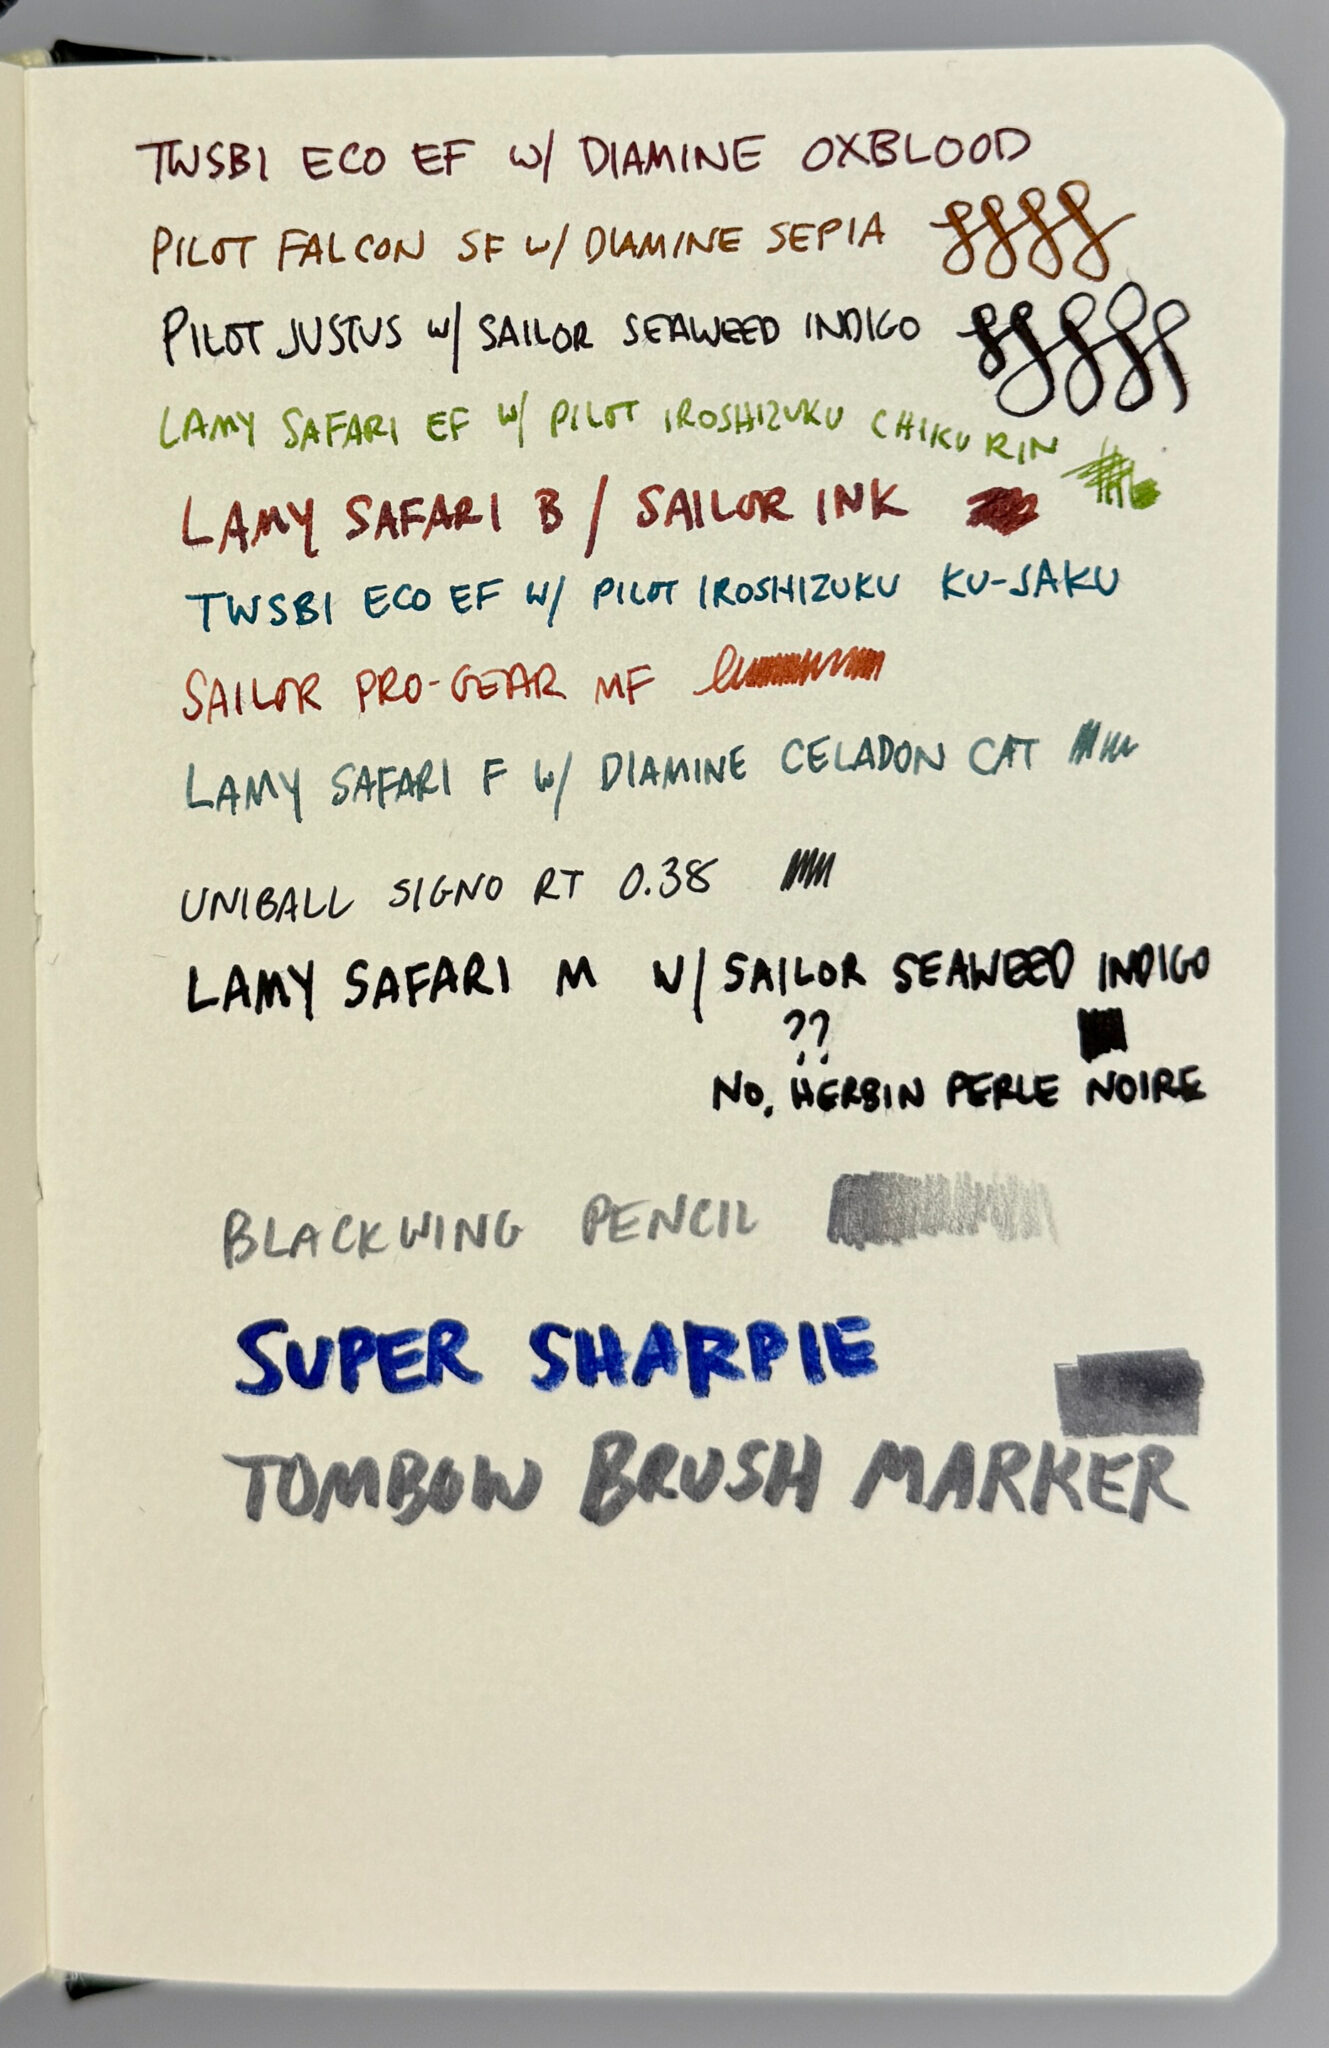 TWSBI ECO EF W/ DIAMINE OXBLOOD
PILOT FALCON SF W/ DIAMINE SEPIA
PILOT JUSTUS W/ SAILOR SEAWEED INDIGO
LAMY SAFARI EF W/ PILOT IROSHIZUKU CHIKU RIN
LAMY SAFARI B / SAILOR INK
TWSBI ECO EF W/ PILOT IROSHIZUKU KU-JAKU
SAILOR PRO-GEAR MF
LAMY SAFARI F W/ DIAMINE CELADON CAT
UNIBALL SIGNO RT 0.38
LAMY SAFARI M W/ SAILOR SEAWEED INDIGO
??
NO, HERBIN PERLE NOIRE
BLACKWING PENCIL
SUPER SHARPIE
TOMBOW BRUSH MARKER